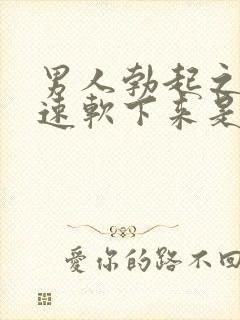 男人勃起之
速軟下来是
愛你的路不回